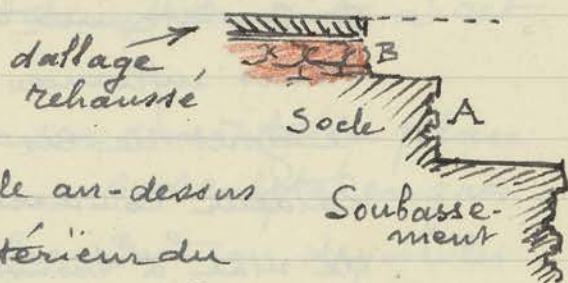 dallage
rehaussé
B
Socle
A
le au-dessus
Soubasse-
ment
térieur du